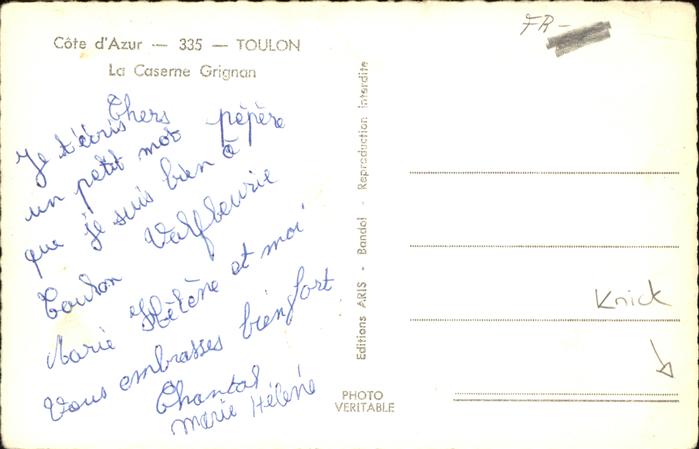 Côte d'Azur — 335 — TOULON
La Caserne Grignan
Chers
Je t'écris pépère
un petit mot
que je suis bien à
Toulon Valfleurie
Marie Hélène et moi
Vous embrasses bien fort
Chantal
Marie Hélène
Editions ARIS - Bandol - Reproduction Interdite
PHOTO
VERITABLE
FR-
Knick